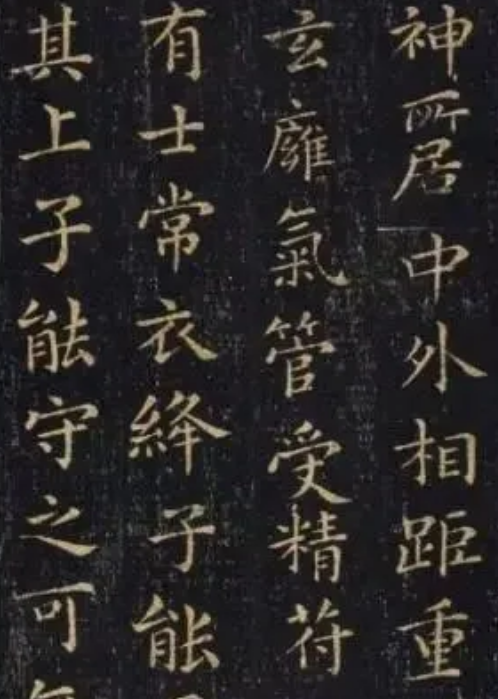 神所居中外相距重
玄廱氣管受精苻
有士常衣絳子能
其上子能守之可